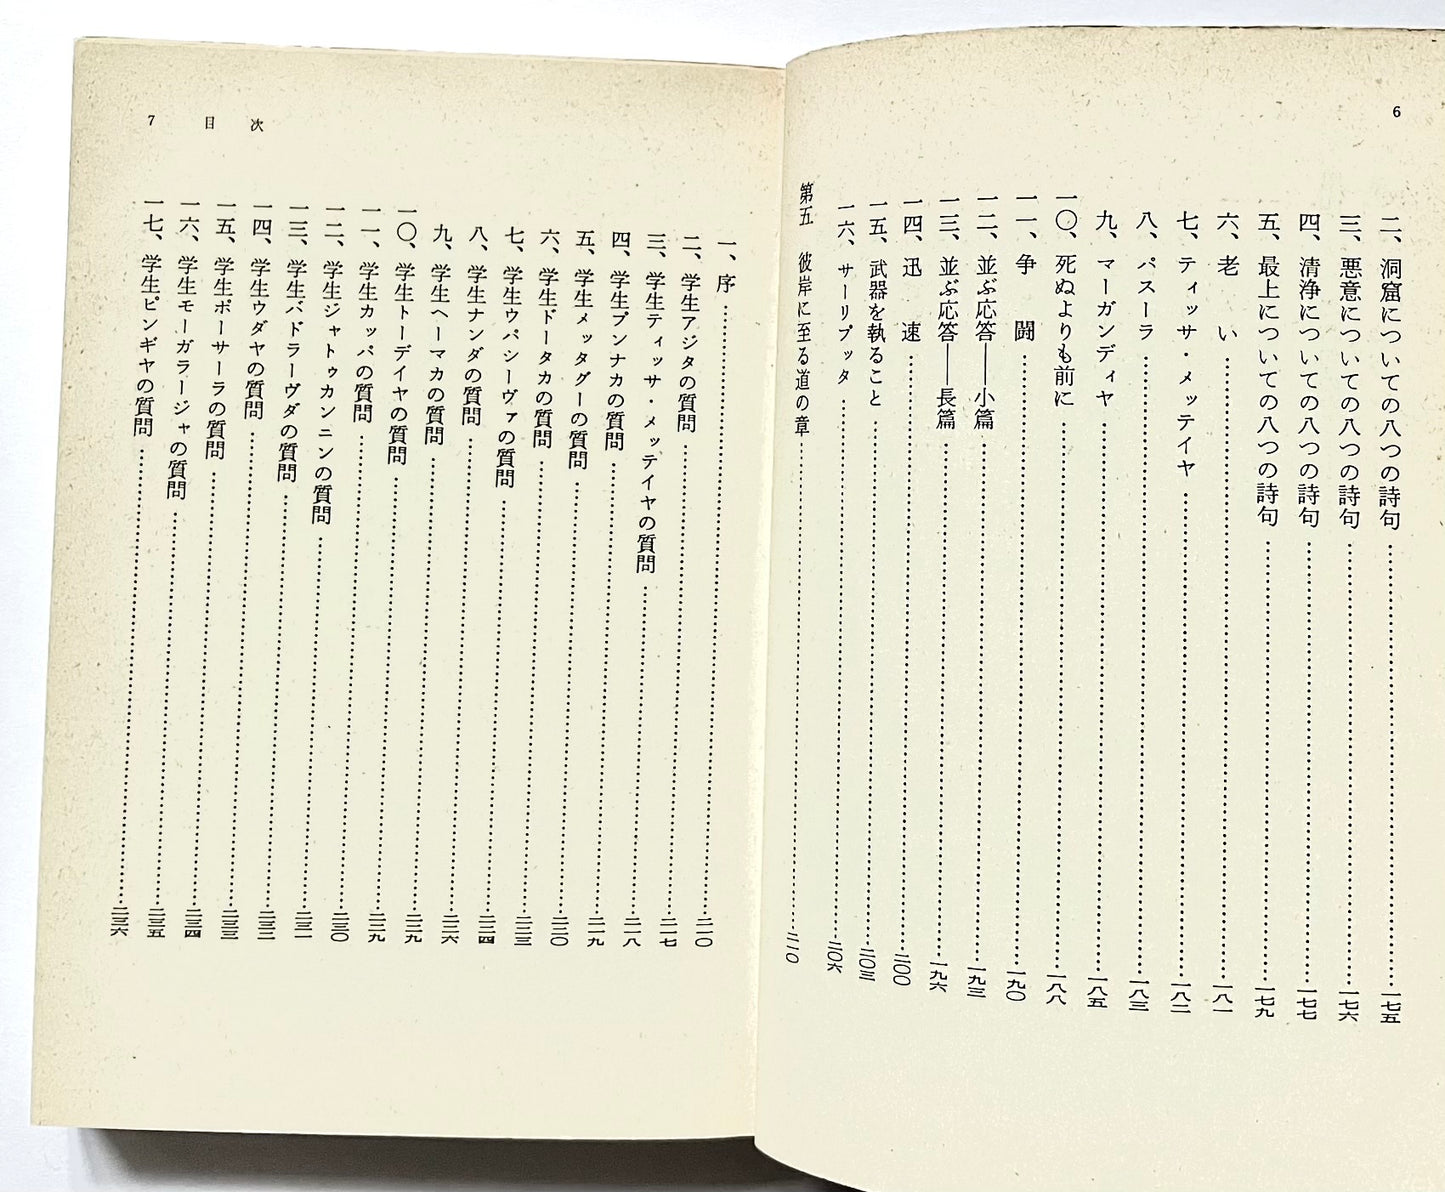 6
二、洞窟についての八つの詩句……一七五
三、悪意についての八つの詩句……一七六
四、清浄についての八つの詩句……一七七
五、最上についての八つの詩句……一七九
六、老い……一八一
七、ティッサ・メッテイヤ……一八二
八、パスーラ……一八三
九、マーガンディヤ……一八五
一〇、死ぬよりも前に……一八八
一一、争闘……一九〇
一二、並ぶ応答――小篇……一九三
一三、並ぶ応答――長篇……一九六
一四、迅速……二〇〇
一五、武器を執ること……二〇三
一六、サーリプッタ……二〇六
第五 彼岸に至る道の章……二一〇
7 目次
一、序……二一〇
二、学生アジタの質問……二一七
三、学生ティッサ・メッテイヤの質問……二一八
四、学生プンナカの質問……二一九
五、学生メッタグーの質問……二二〇
六、学生ドータカの質問……二二三
七、学生ウパシーヴァの質問……二二四
八、学生ナンダの質問……二二六
九、学生ヘーマカの質問……二二九
一〇、学生トーデイヤの質問……二二九
一一、学生カッパの質問……二三〇
一二、学生ジャトゥカンニンの質問……二三一
一三、学生バドラーヴダの質問……二三二
一四、学生ウダヤの質問……二三三
一五、学生ポーサーラの質問……二三四
一六、学生モーガラージャの質問……二三五
一七、学生ピンギヤの質問……二三六